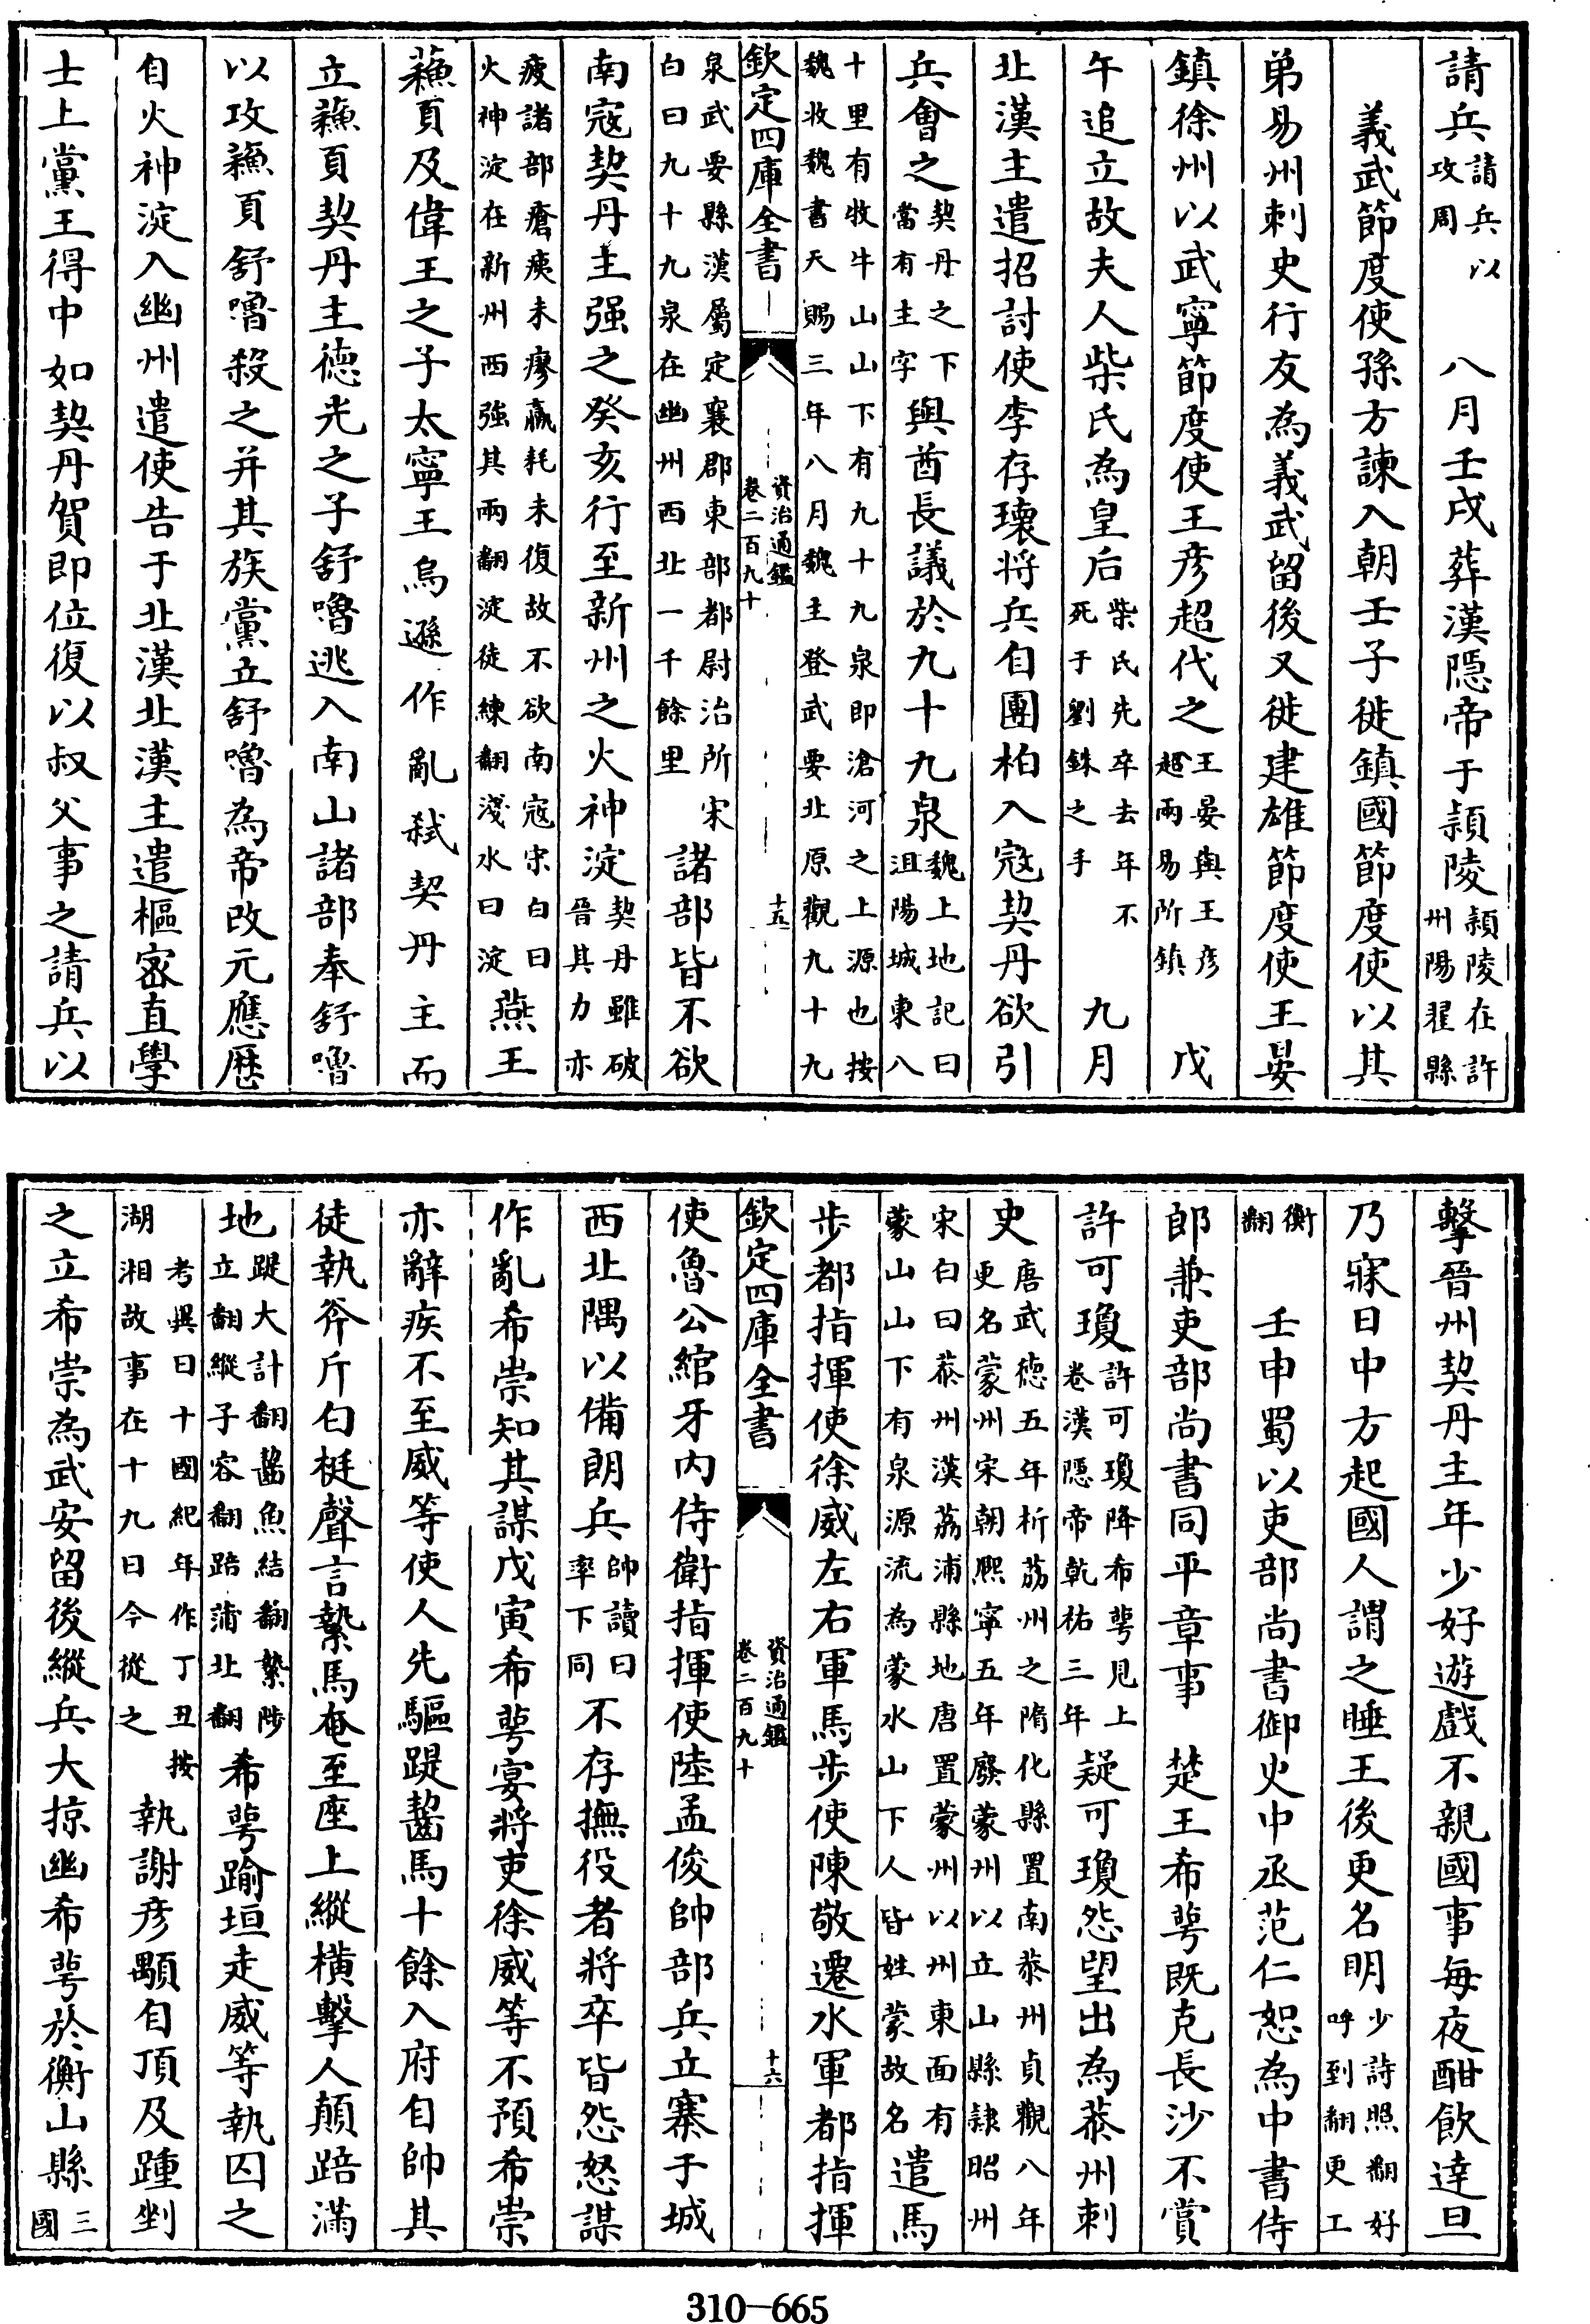 請兵請兵以攻周　八月壬戌葬漢隱帝于潁陵潁陵在許州陽翟縣
義武節度使孫方諫入朝壬子徙鎮國節度使以其
弟易州刺史行友為義武留後又徙建雄節度使王晏
鎮徐州以武寧節度使王彥超代之王晏與王彥超兩易所鎮　戊
午追立故夫人柴氏為皇后柴氏先卒去年不死于劉銖之手　九月
北漢主遣招討使李存瓌將兵自團柏入寇契丹欲引
兵會之契丹之下當有主字與酋長議於九十九泉魏土地記曰沮陽城東八
十里有牧牛山山下有九十九泉即滄河之上源也按魏收魏書天賜三年八月魏主登武要北原觀九十九
欽定四庫全書　資治通鑑卷二百九十　十五
泉武要縣漢屬定襄郡東部都尉治所宋白曰九十九泉在幽州西北一千餘里諸部皆不欲
南寇契丹主强之癸亥行至新州之火神淀契丹雖破晉其力亦
疲諸部瘡痍未瘳羸耗未復故不欲南寇宋白曰火神淀在新州西強其兩翻淀徒練翻淺水曰淀燕王
蕪頁及偉王之子太寧王烏遜作亂弒契丹主而
立蕪頁契丹主德光之子舒嚕逃入南山諸部奉舒嚕
以攻蕪頁舒嚕殺之并其族黨立舒嚕為帝改元應歷
自火神淀入幽州遣使告于北漢北漢主遣樞密直學
士上黨王得中如契丹賀即位復以叔父事之請兵以
擊晉州契丹主年少好遊戲不親國事每夜酣飲達旦
乃寐日中方起國人謂之睡王後更名明少詩照翻好呼到翻更工
衡翻　壬申蜀以吏部尚書御史中丞范仁恕為中書侍
郎兼吏部尚書同平章事　楚王希萼既克長沙不賞
許可瓊許可瓊降希萼見上卷漢隱帝乾祐三年疑可瓊怨望出為蒙州刺
史唐武德五年析荔州之隋化縣置南恭州貞觀八年更名蒙州宋朝熙寧五年廢蒙州以立山縣隸昭州
宋白曰蒙州漢荔浦縣地唐置蒙州以州東面有蒙山山下有泉源流為蒙水山下人皆姓蒙故名遣馬
步都指揮使徐威左右軍馬步使陳敬遷水軍都指揮
欽定四庫全書　資治通鑑卷二百九十　十六
使魯公綰牙內侍衛指揮使陸孟俊帥部兵立寨于城
西北隅以備朗兵帥讀曰率下同不存撫役者將卒皆怨怒謀
作亂希崇知其謀戊寅希萼宴將吏徐威等不預希崇
亦辭疾不至威等使人先驅踶齧馬十餘入府自帥其
徒執斧斤白梃聲言縶馬奄至座上縱橫擊人顛踣滿
地踶大計翻齧魚結翻縶陟立翻縱子容翻踣蒲北翻希萼踰垣走威等執囚之
考異曰十國紀年作丁丑按湖湘故事在十九日今從之執謝彥顒自頂及踵剉
之立希崇為武安留後縱兵大掠幽希萼於衡山縣三國
310—665